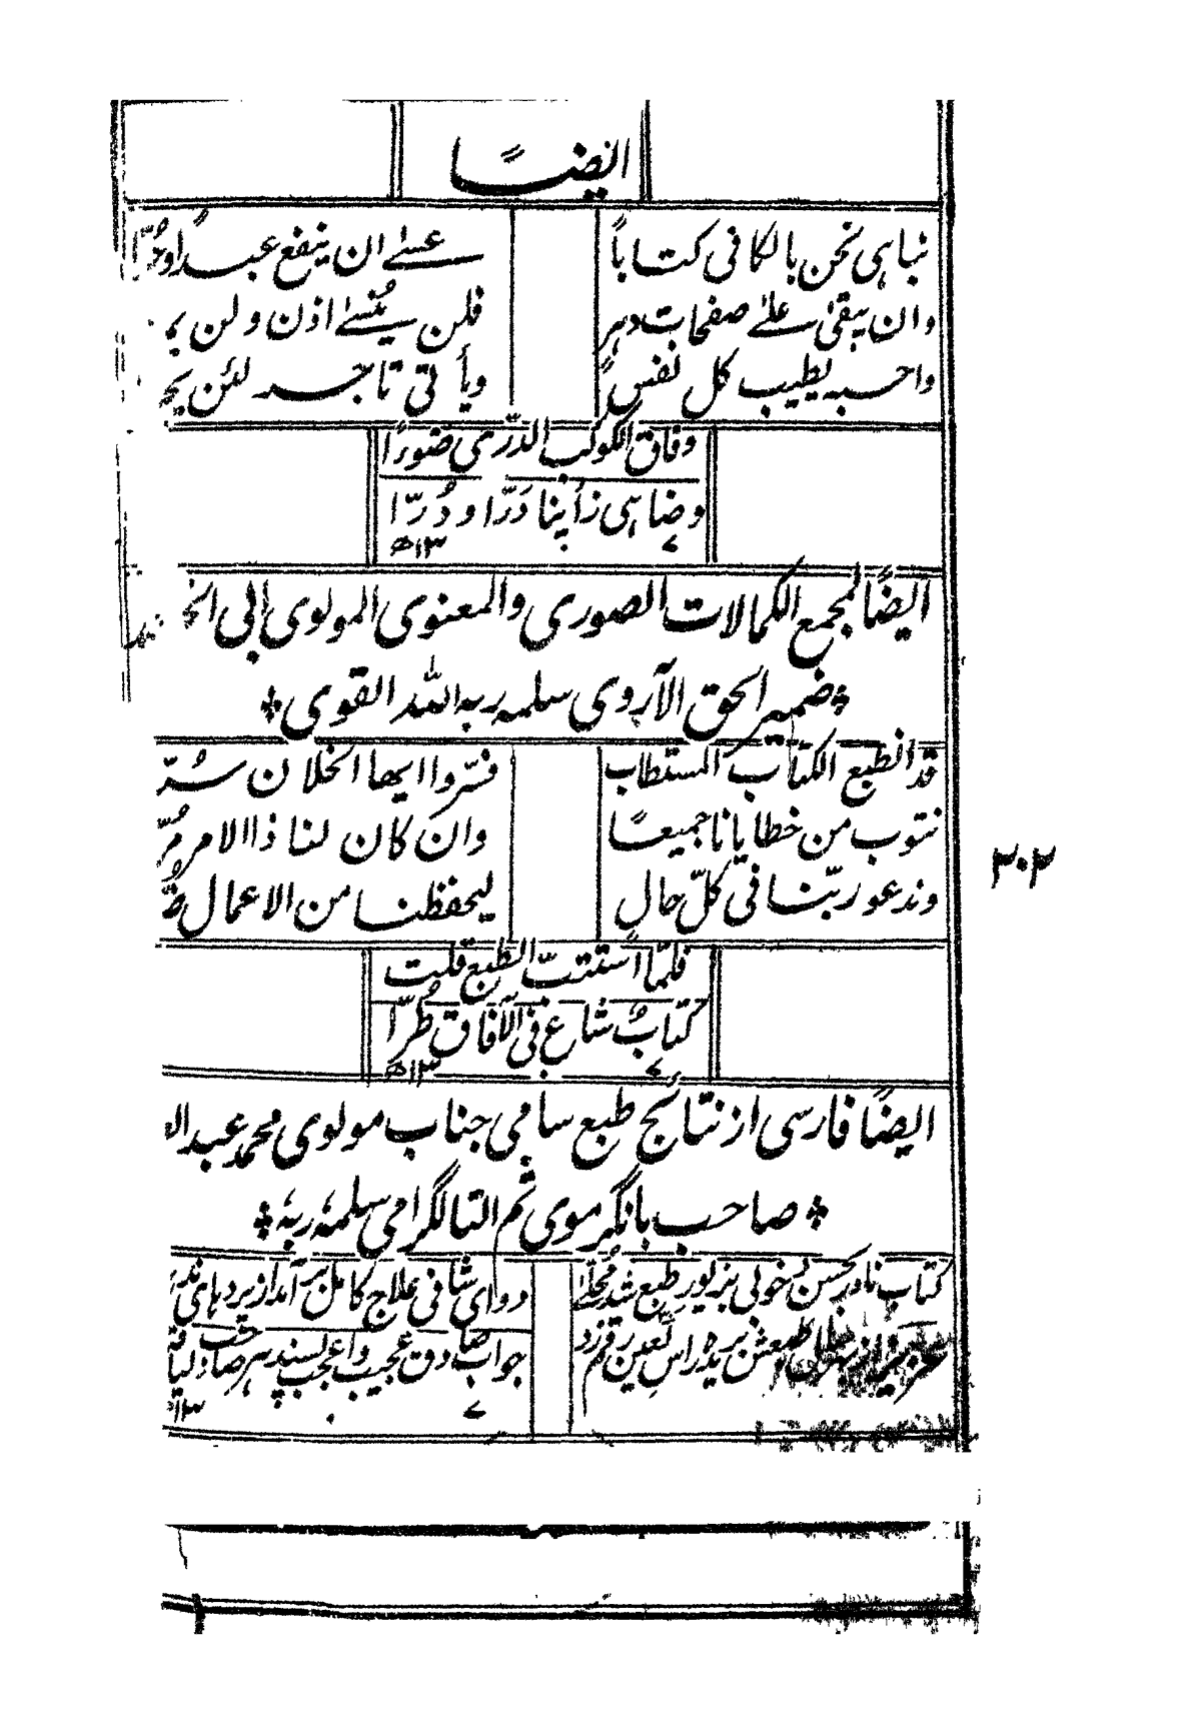 ایضًا
نباہی نحن بالکافی کتاباً
عسےٰ ان ینفع عبداً وحُرّا
وان یبقیٰ علےٰ صفحات دہرٍ
فلن یُنسےٰ اذن ولن
واحسبہ یطیب کل نفسٍ
ویأتی تاجر لئن
وفاق الکوکب الدّری ضوءًا
وضاہی زأینا دَرّا و دُرّا
۱۳ھ
ایضًا لمجمع الکمالات الصوری والمعنوی المولوی ابی
ضمیر الحق الآروی سلمہ ربہ اللہ القوی
قد انطبع الکتاب المستطاب
فسرّوا ایھا الخلان سُرّ
نتوب من خطایانا جمیعًا
وان کان لنا ذا الامر مُرّ
وندعو ربّنا فی کلّ حال
لیحفظنا من الاعمال
فلمّا استتبّ الطبع قلت
کتابٌ شاع فی الآفاق طُرّا
۱۳ھ
ایضًا فارسی از نتائج طبع سامی جناب مولوی محمد
صاحب بانگرموی ثم التالگرامی سلمہ ربہ
کتاب نادر بحسن خوبی بزیور طبع شد محلّے
دوای شافی علاج کامل برآمد از
طبعش بریدہ راس لعین رقم زد
جواب صادق عجیب واعجب پسند ہر
۱۳
۲۰۲